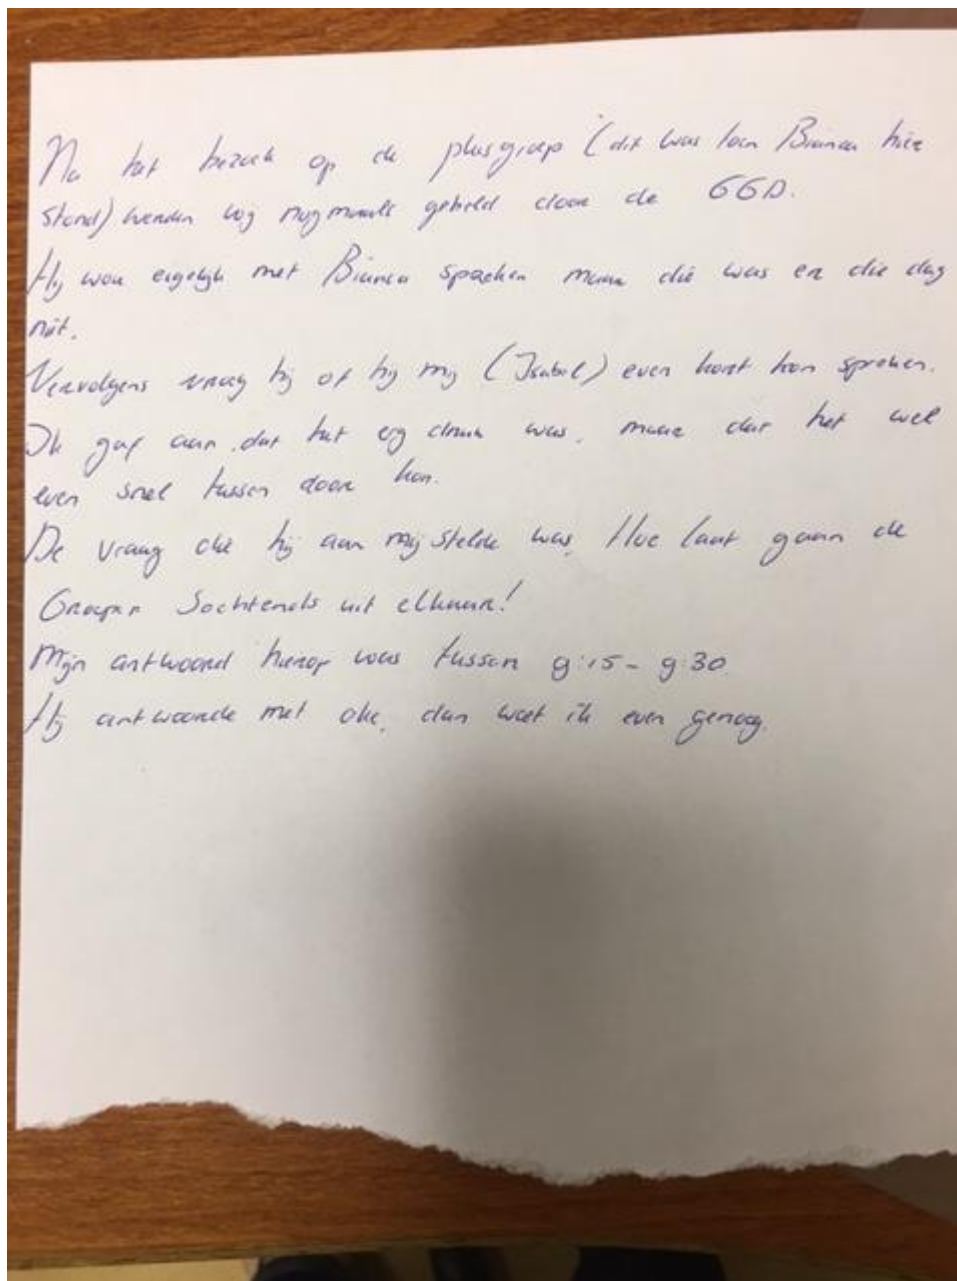 Na het bezoek op de plusgroep (dit was toen Bianca hier
stond) werden wij nogmaals gebeld door de GGD.
Hij wou eigelijk met Bianca spreken maar die was er die dag
niet.
Vervolgens vraag hij of hij mij (Isabel) even kort kon spreken.
Ik gaf aan, dat het erg druk was, maar dat het wel
even snel tussen door kon.
De vraag die hij aan mij stelde was, Hoe laat gaan de
Groepen Sochtends uit elkaar!
Mijn antwoord hierop was tussen 9:15 - 9:30.
Hij antwoorde met oke, dan weet ik even genoeg.